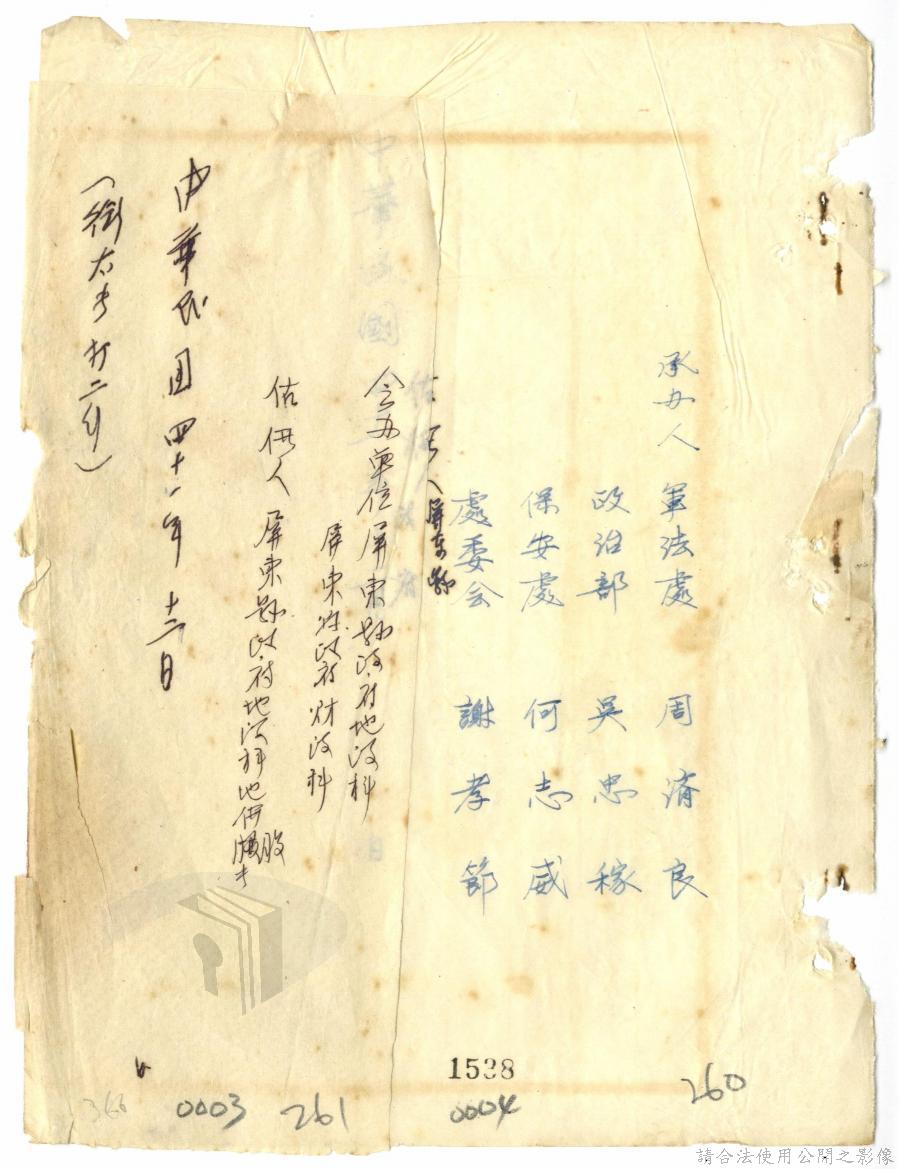 承办人 軍法處 周濟良
政治部 吳忠稼
保安處 何志威
處委会 謝孝節
人屏东縣
会办單位屏東縣政府地政科
屏東縣政府财政科
估價人 屏東縣政府地政科地價股
中華民国四十一年 十二日
中華民國
1538
260
0004
261
0003
366
請合法使用公開之影像